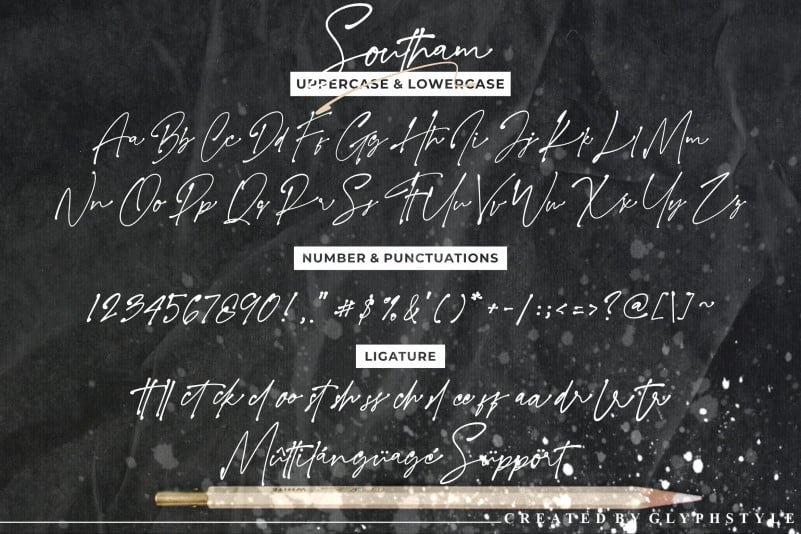 Southam
UPPERCASE & LOWERCASE
Aa Bb Cc Dd Ff Gg Hh Ii Jj Kk Ll Mm
Nn Oo Pp Qq Rr Ss Tt Uu Vv Ww Xx Yy Zz
NUMBER & PUNCTUATIONS
1234567890!,." #$%&'()*+-/:;<=>?@[\]~
LIGATURE
tt ll ct ck cl oo st sh ss ch sl ee ff aa dr lr tr
Mûltilángüagé Süppört
CREATED BY GLYPHSTYLE